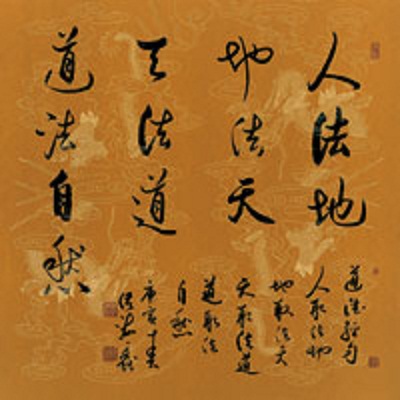 人法地
地法天
天法道
道法自然
道德經句
人取法地
地取法天
天取法道
道取法
自然
庚寅